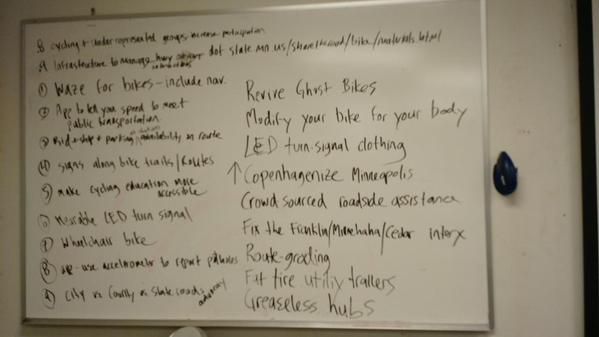 cycling + under represented groups increase participation
Infrastructure to manage dot state mn.us/sharetheroad/bike/materials.html
① Waze for bikes - include nav.
② App to tell you speed to meet
public transportation
③ + parking availability on route
④ signs along bike trails/routes
5 make cycling education more
accessible
LED turn signal
⑦ Wheelchair bike
⑧ use accelerometer to report potholes
⑨ City vs County vs State roads
advocacy
Revive Ghost Bikes
Modify your bike for your body
LED turn-signal clothing
↑ Copenhagenize Minneapolis
Crowd sourced roadside assistance
Fix the Franklin/Minnehaha/Cedar interx
Route-grading
Fat tire utiliy trailers
Greaseless hubs